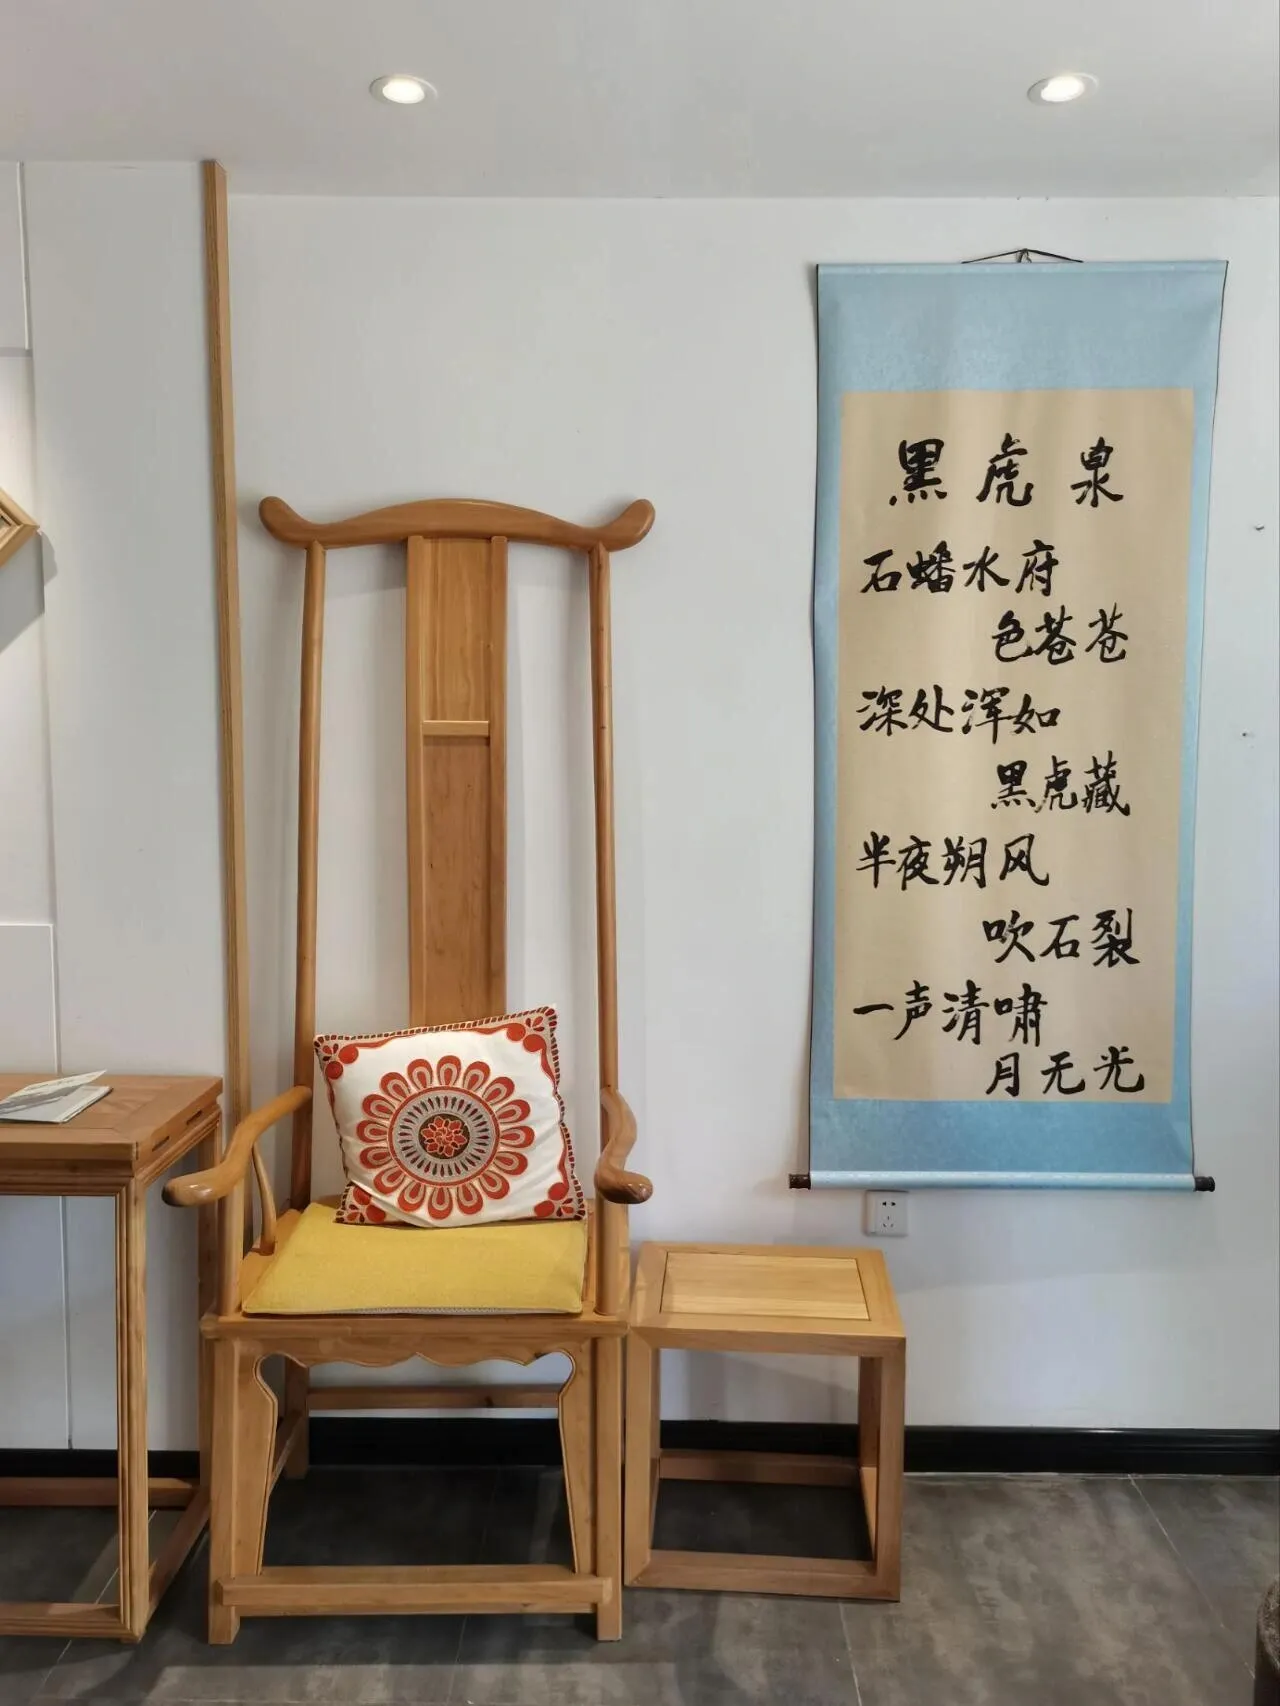 黑虎泉
石蟠水府
色苍苍
深处浑如
黑虎藏
半夜朔风
吹石裂
一声清啸
月无光